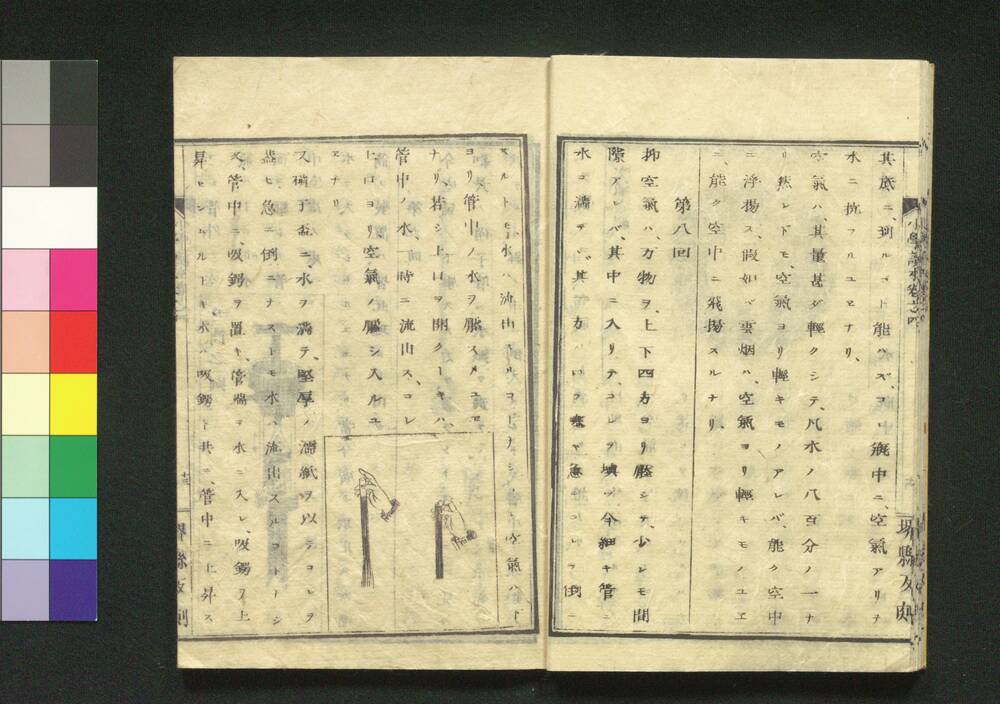 小學讀本卷之四
其底ニ、到ルコト能ハズ、コレ瓶中ニ、空氣アリテ
水ニ抗フルユエナリ、
空氣ハ、其量甚ダ輕クシテ、凡水ノ八百分ノ一ナ
リ然レドモ、空氣ヨリ輕キモノアレバ、能ク空中
ニ浮揚ス、假如バ雲烟ハ、空氣ヨリ輕キモノユエ
ニ、能ク空中ニ飛揚スルナリ、
第八回
抑空氣ハ、万物ヲ、上下四方ヨリ壓シテ、少シモ間
隙アレバ、其中ニ入リテ、コレヲ塡ツ、今細キ管ニ
水ヲ滿テヽ、其方ノ口ヲ塞ギ急ニコレヲ倒ニ
スルトモ、水ハ流出スルコトナシ、空氣ハ下
ヨリ管中ノ水ヲ壓スルユエ
ナリ、若シ上口ヲ開クトキハ
管中ノ水一時ニ流出ス、コレ
上口ヨリ空氣ノ壓シ入ルユ
エナリ
又硝子盃ニ、水ヲ滿テ、堅厚ノ濡紙ヲ以テコレヲ
蓋ヒ急ニ倒ニナストモ水ハ流出スルコトナシ
又、管中ニ、吸鍔ヲ置キ、管端ヲ水ニ入レ、吸鍔ヲ上
昇セシムルトキ水ハ吸鍔ト共ニ、管中ニ上昇ス
堺縣反刻